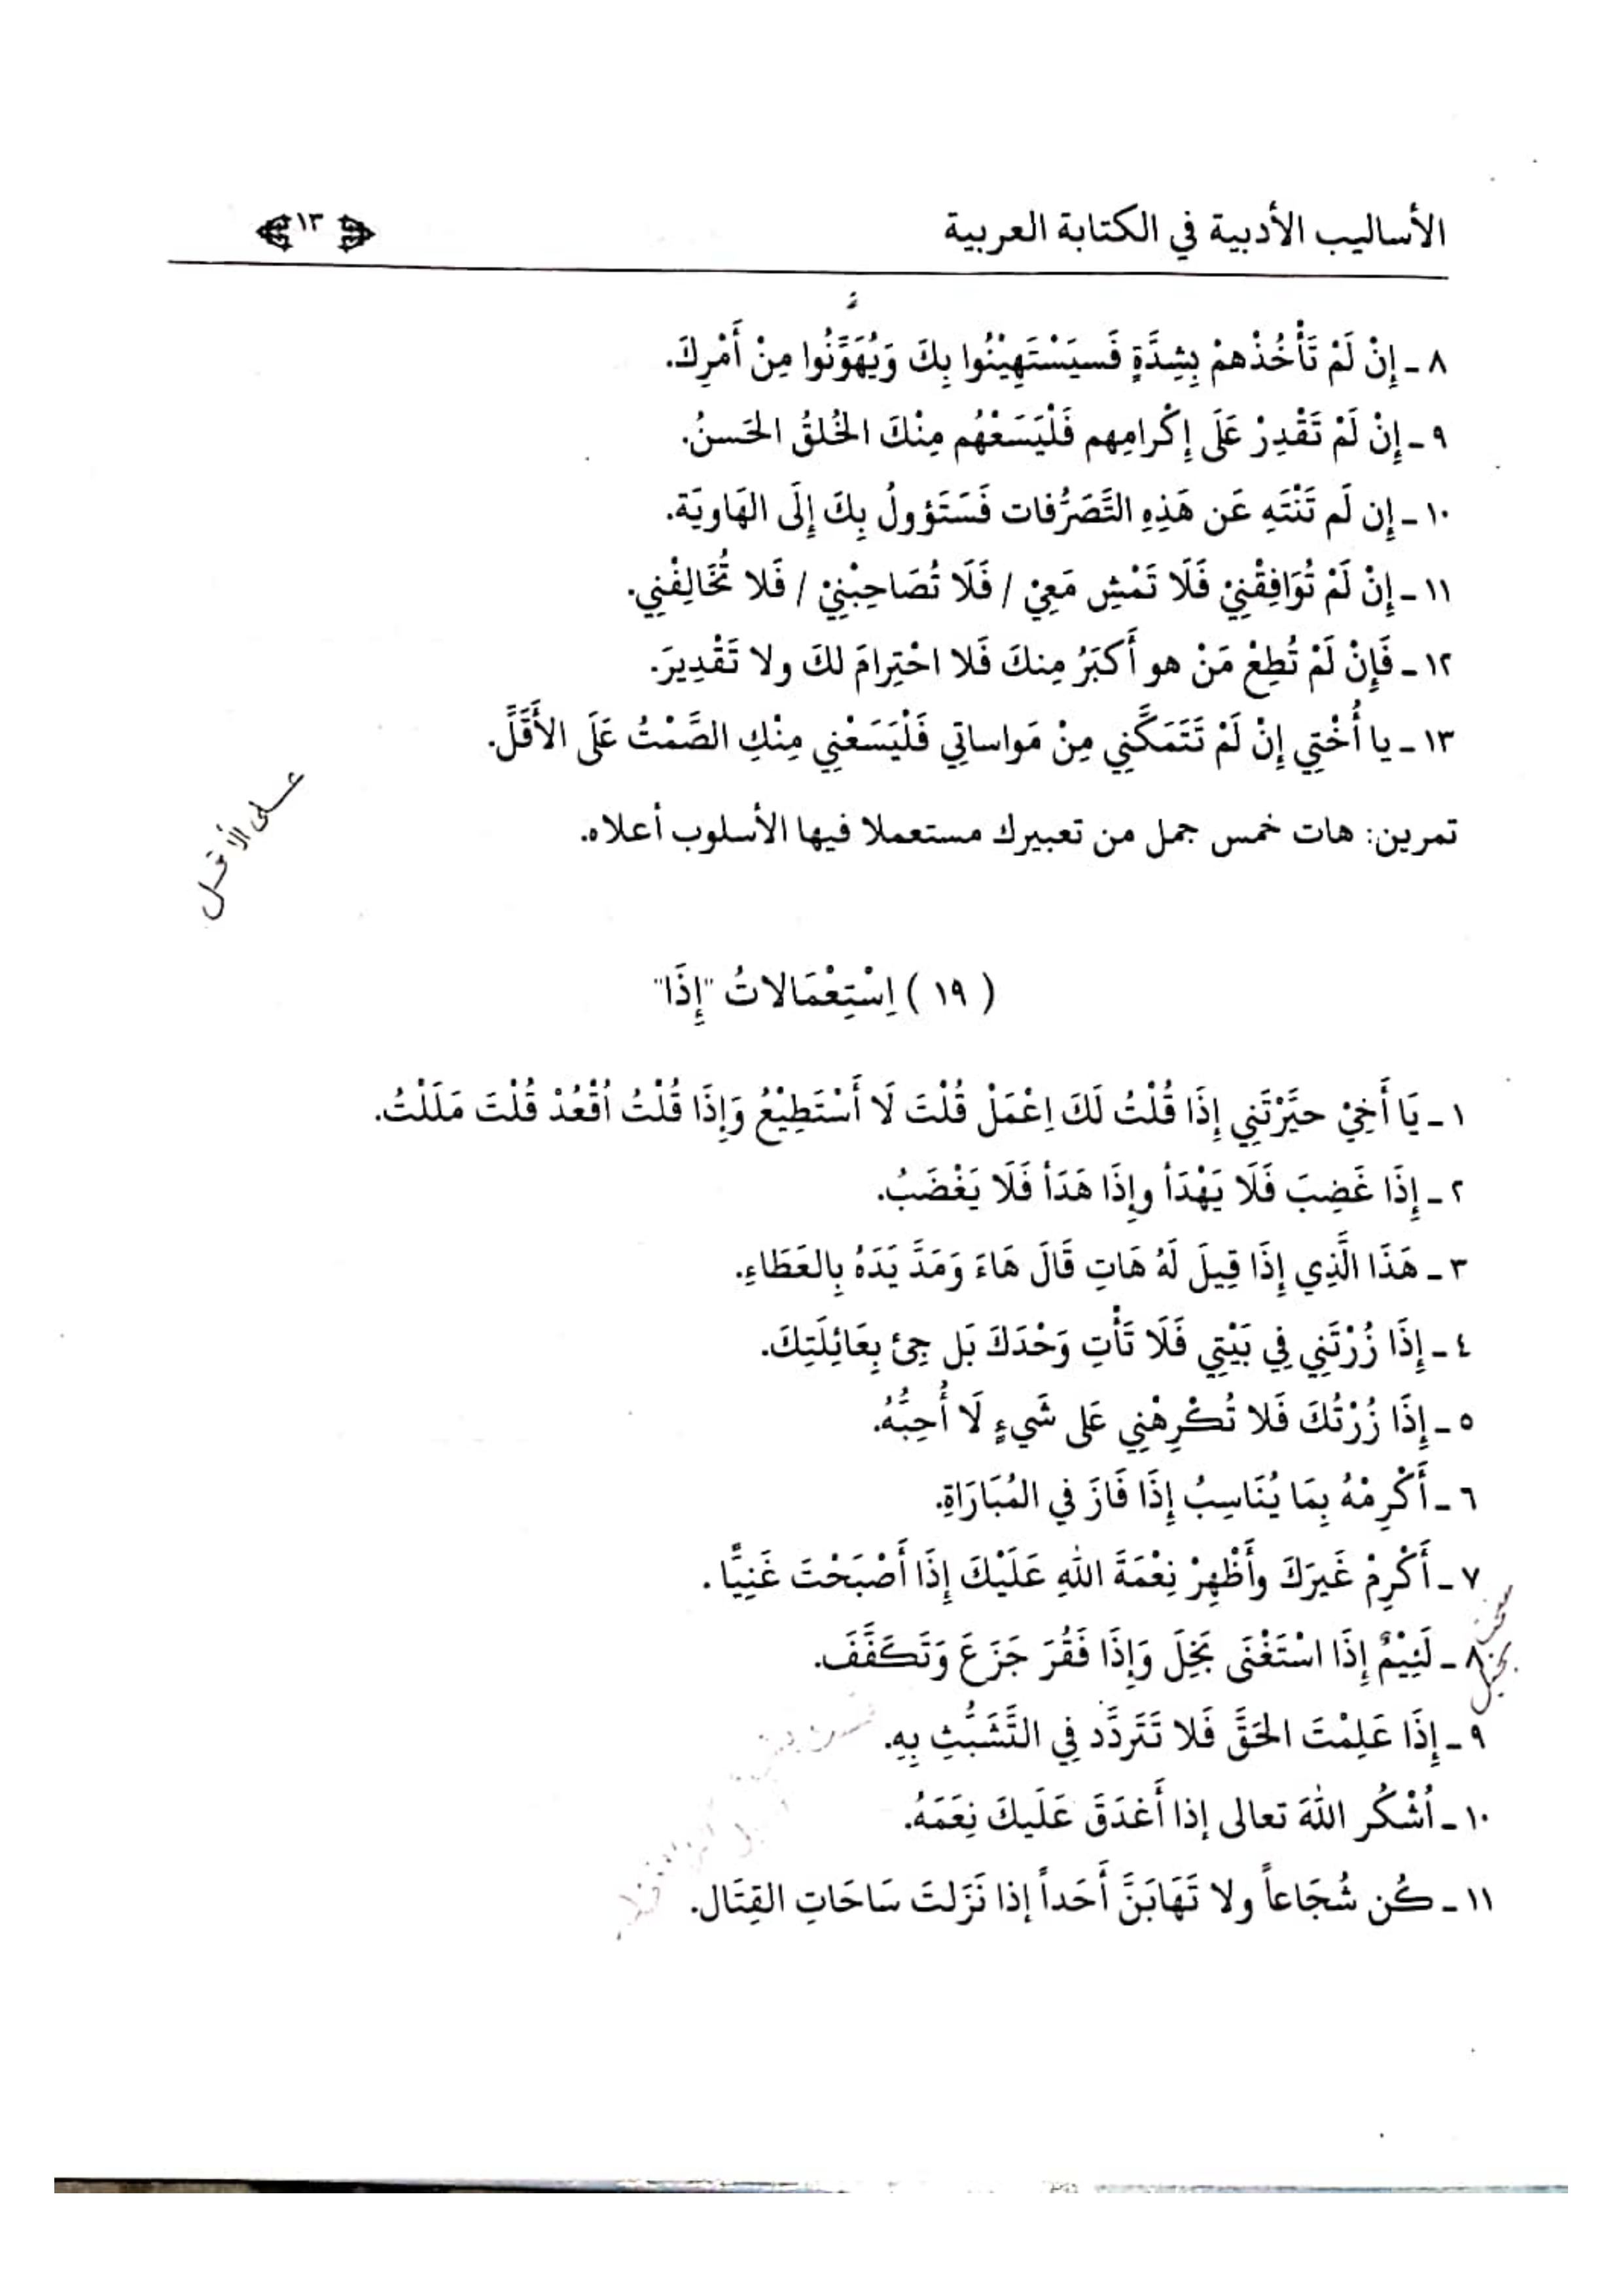 الأساليب الأدبية في الكتابة العربية
١٣
٨ ـ إِنْ لَمْ تَأْخُذْهمْ بِشِدَّةٍ فَسيَسْتَهِيْنُوا بِكَ وَيُهَوِّنُوا مِنْ أَمْرِكَ.
٩ ـ إِنْ لَمْ تَقْدِرْ عَلَى إِكْرامِهم فَلْيَسَعْهُم مِنْكَ الخُلقُ الحَسنُ.
١٠ ـ إِن لَم تَنْتَهِ عَن هَذِهِ التَّصَرُّفات فَسَتَؤولُ بِكَ إِلَى الهَاويَة.
١١ ـ إِنْ لَمْ تُوَافِقْنِيْ فَلَا تَمْشِ مَعِيْ / فَلَا تُصَاحِبْنِيْ / فَلا تُخَالِفْنِي.
١٢ ـ فَإِنْ لَمْ تُطِعْ مَنْ هو أَكبَرُ مِنكَ فَلا احْتِرامَ لكَ ولا تَقْدِيرَ.
١٣ ـ يا أُخْتِي إِنْ لَمْ تَتَمَكَّنِي مِنْ مَواساتِي فَلْيَسَعْنِي مِنْكِ الصَّمْتُ عَلَى الأَقَلِّ.
على الأقل
تمرين: هات خمس جمل من تعبيرك مستعملا فيها الأسلوب أعلاه.
( ١٩ ) اِسْتِعْمَالاتُ "إِذَا"
١ ـ يَا أَخِيْ حيَّرْتَنِي إِذَا قُلْتُ لَكَ اِعْمَلْ قُلْتَ لَا أَسْتَطِيْعُ وَإِذَا قُلْتُ اُقْعُدْ قُلْتَ مَلَلْتُ.
٢ ـ إِذَا غَضِبَ فَلَا يَهْدَأ وإِذَا هَدَأ فَلَا يَغْضَبُ.
٣ ـ هَذَا الَّذِي إِذَا قِيلَ لَهُ هَاتِ قَالَ هَاءَ وَمَدَّ يَدَهُ بِالعَطَاءِ.
٤ ـ إِذَا زُرْتَنِي فِي بَيْتِي فَلَا تَأْتِ وَحْدَكَ بَل جِئ بِعَائِلَتِكَ.
٥ ـ إِذَا زُرْتُكَ فَلا تُكْرِهْنِي عَلى شَيءٍ لَا أُحِبُّهُ.
٦ ـ أَكْرِمْهُ بِمَا يُنَاسِبُ إِذَا فَازَ في المُبَارَاةِ.
٧ ـ أَكْرِمْ غَيرَكَ وأَظْهِرْ نِعْمَةَ اللهِ عَلَيْكَ إِذَا أَصْبَحْتَ غَنِيًّا .
٨ ـ لَئِيْمٌ إِذَا اسْتَغْنَى بَخِلَ وَإِذَا فَقُرَ جَزَعَ وَتَكَفَّفَ.
٩ ـ إِذَا عَلِمْتَ الحَقَّ فَلا تَتَردَّد فِي التَّشَبُّثِ بِهِ.
١٠ ـ اُشْكُر اللهَ تعالى إذا أَغدَقَ عَلَيكَ نِعَمَهُ.
١١ ـ كُن شُجَاعاً ولا تَهَابَنَّ أَحَداً إذا نَزَلتَ سَاحَاتِ القِتَال.